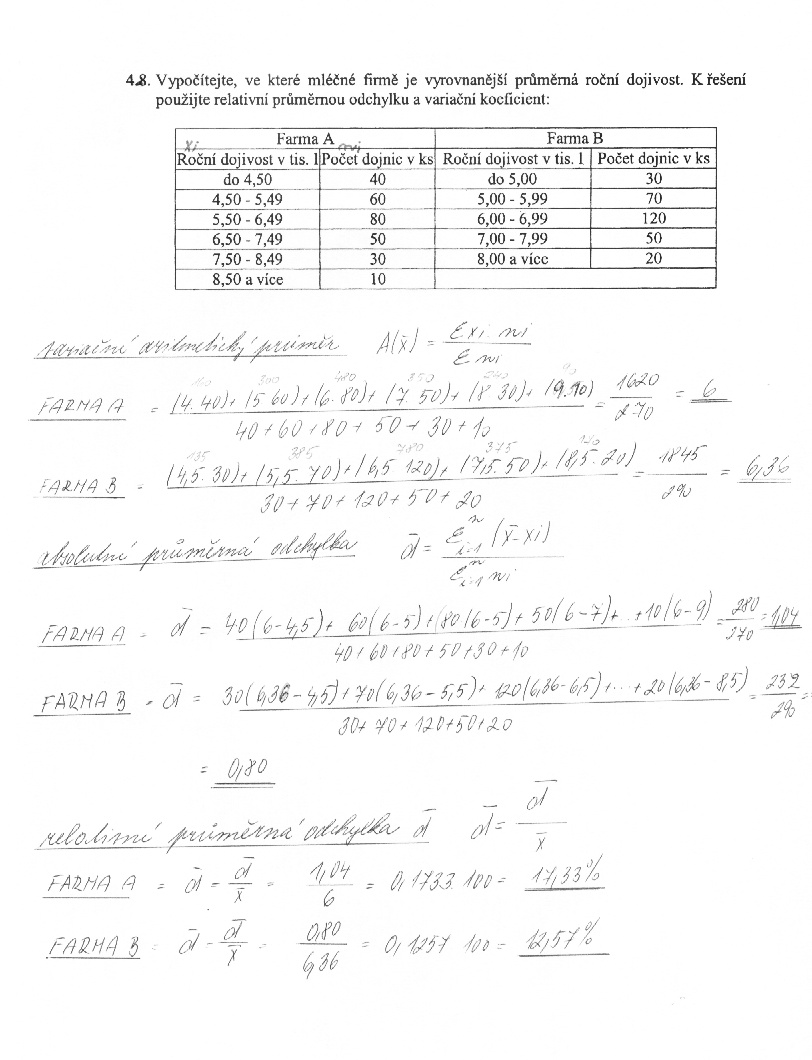 4.8. Vypočítejte, ve které mléčné firmě je vyrovnanější průměrná roční dojivost. K řešení
použijte relativní průměrnou odchylku a variační koeficient:
Farma A Farma B
xi ni
Roční dojivost v tis. l Počet dojnic v ks Roční dojivost v tis. l Počet dojnic v ks
do 4,50 40 do 5,00 30
4,50 - 5,49 60 5,00 - 5,99 70
5,50 - 6,49 80 6,00 - 6,99 120
6,50 - 7,49 50 7,00 - 7,99 50
7,50 - 8,49 30 8,00 a více 20
8,50 a více 10
variační aritmetický průměr A(x̄) = Σxi ni / Σni
160 300 480 350 240 90
FARMA A = (4.40)+(5.60)+(6.80)+(7.50)+(8.30)+(9.10) / 40+60+80+50+30+10 = 1620 / 270 = 6
135 385 780 375 170
FARMA B = (4,5.30)+(5,5.70)+(6,5.120)+(7,5.50)+(8,5.20) / 30+70+120+50+20 = 1845 / 290 = 6,36
absolutní průměrná odchylka d̄ = Σ n i=1 (x̄-xi) / Σ n i=1 ni
FARMA A - d̄ = 40(6-4,5)+60(6-5)+(80(6-5)+50(6-7)+..+10(6-9) / 40+60+80+50+30+10 = 280 / 270 = 1,04
FARMA B - d̄ = 30(6,36-4,5)+70(6,36-5,5)+120(6,36-6,5)+...+20(6,36-8,5) / 30+70+120+50+20 = 232 / 290 =
= 0,80
relativní průměrná odchylka d̄ d̄ = d̄ / x̄
FARMA A = d̄ = d̄ / x̄ = 1,04 / 6 = 0,1733.100 = 17,33%
FARMA B = d̄ = d̄ / x̄ = 0,80 / 6,36 = 0,1257 100 = 12,57%